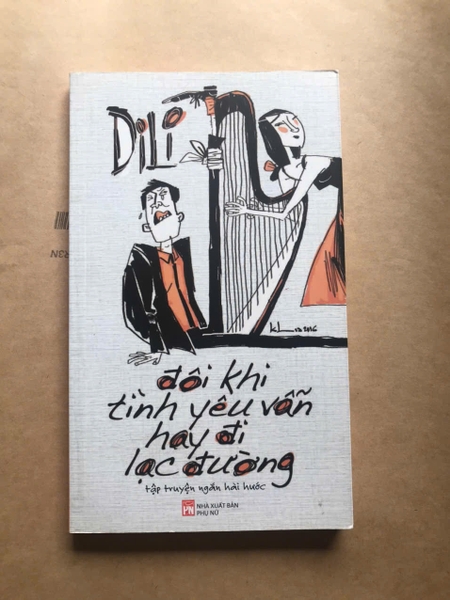 DiLi
đôi khi
tình yêu vẫn
hay đi
lạc đường
tập truyện ngắn hài hước
PN
NHÀ XUẤT BẢN
PHỤ NỮ